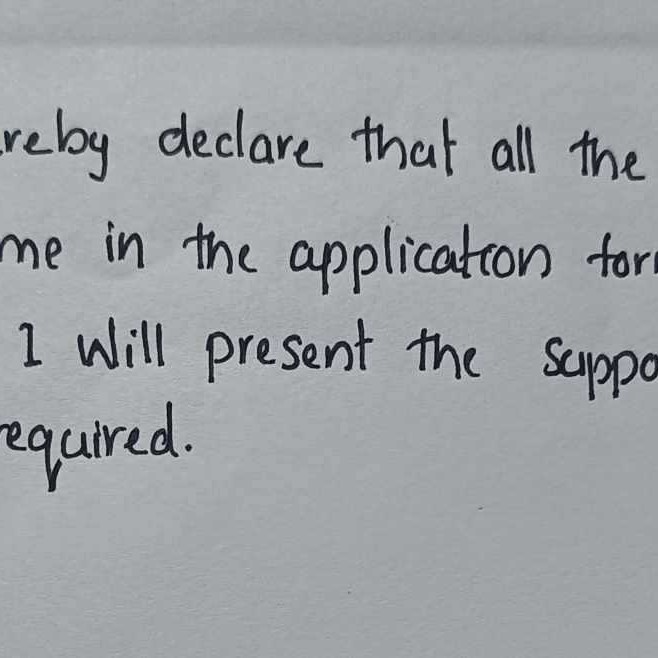 reby declare that all the
me in the application for
I Will present the suppo
required.